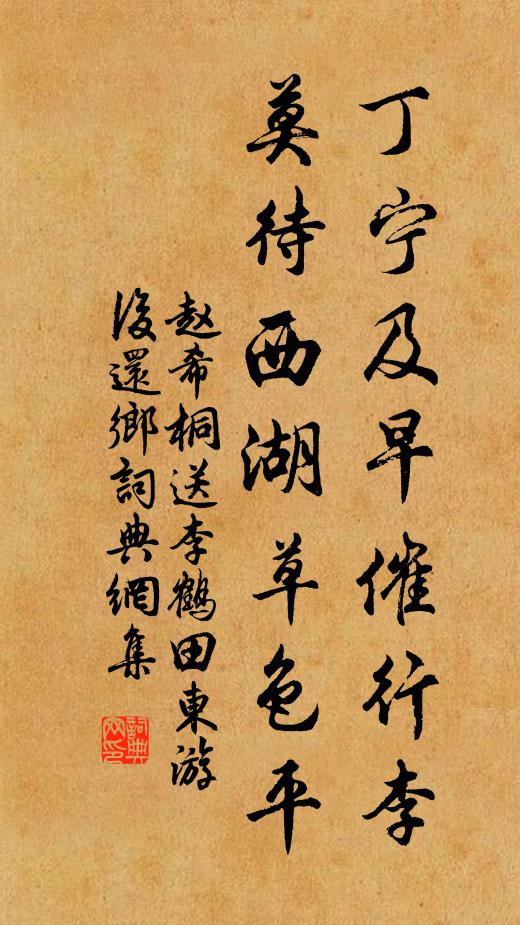 丁宁及早催行李
莫待西湖草色平
赵希桐送李鹤田東游
後還鄉詞典網集
詞典网印